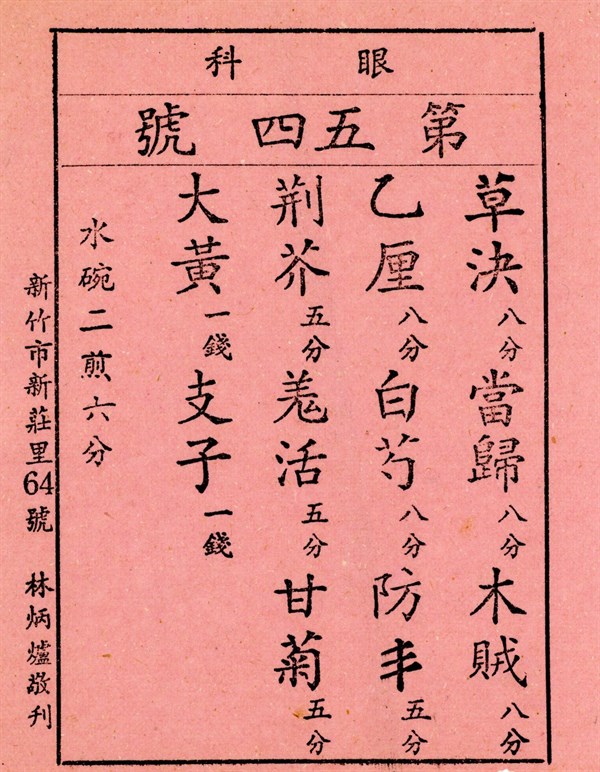 眼科
第五四號
草決八分當歸八分木賊八分
乙厘八分白芍八分防丰五分
荆芥五分羗活五分甘菊五分
大黃一錢支子一錢
水碗二煎六分
新竹市新莊里64號 林炳爐敬刊